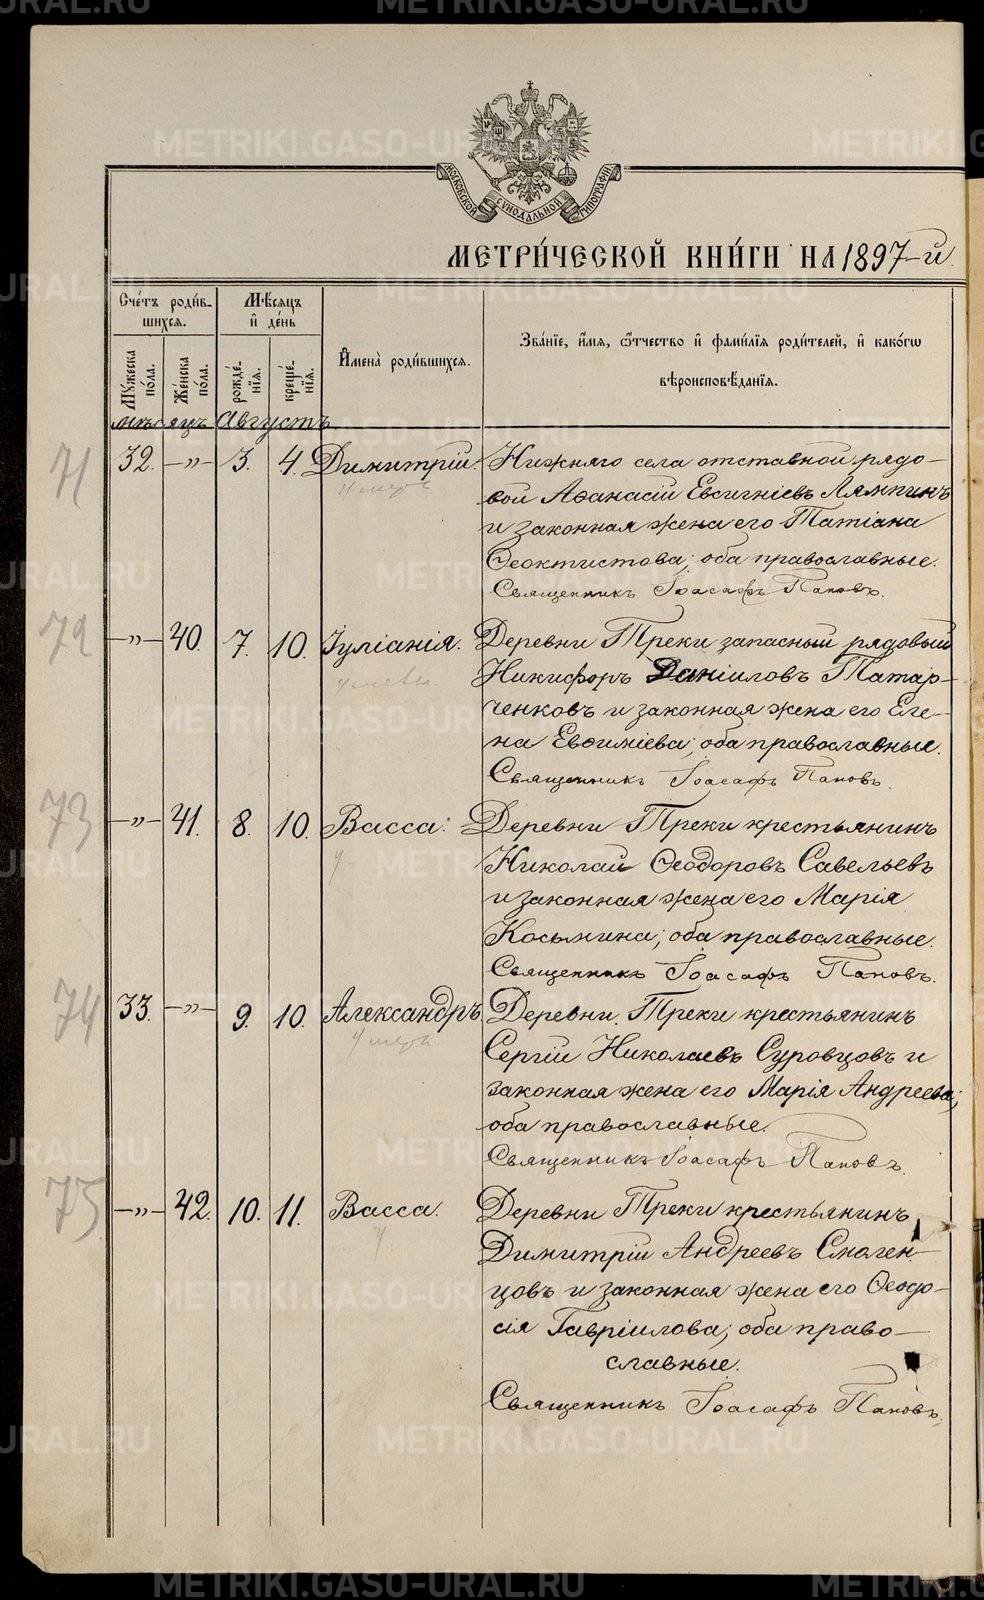 МОСКОВСКОЙ СУНОДАЛЬНОЙ ТИПОГРАФІИ
МЕТРИ́ЧЕСКОЙ КНИ́ГИ НА 1897-й
Сче́тъ роди́в-
шихся.
Мꙋ́жеска по́ла.
Же́нска по́ла.
Мѣ́сяцъ
и҆ де́нь
рожде́-
нїѧ.
креще́-
нїѧ.
И҆мена̀ роди́вшихсѧ.
Зва́нїе, и҆́мѧ, ѻ҆́тчество и҆ фами́лїѧ роди́телей, и҆ како́гѡ
вѣроисповѣ́данїѧ.
мѣсяцъ Августъ
71 32. —„— 3. 4. Димитрій. Нижняго села отставной рядо-
умеръ
вой Аѳанасій Евсигніевъ Лямпинъ
и законная жена его Татіана
Ѳеоктистова; оба православные.
Священникъ Іоасафъ Пановъ.
72 —„— 40. 7. 10. Іуліанія. Деревни Треки запасный рядовый
Никифоръ Даніиловъ Татар-
ченковъ и законная жена его Еле-
на Евѳиміева; оба православные.
Священникъ Іоасафъ Пановъ.
73 —„— 41. 8. 10. Васса. Деревни Треки крестьянинъ
у
Николай Ѳеодоровъ Савельевъ
и законная жена его Марія
Косьмина; оба православные.
Священникъ Іоасафъ Пановъ.
74 33. —„— 9. 10. Александръ Деревни Треки крестьянинъ
умеръ
Сергій Николаевъ Суровцовъ и
законная жена его Марія Андреева;
оба православные.
Священникъ Іоасафъ Пановъ.
75 —„— 42. 10. 11. Васса. Деревни Треки крестьянинъ
у
Димитрій Андреевъ Смолен-
цовъ и законная жена его Ѳеодо-
сія Гавріилова; оба право-
славные.
Священникъ Іоасафъ Пановъ.
METRIKI.GASO-URAL.RU